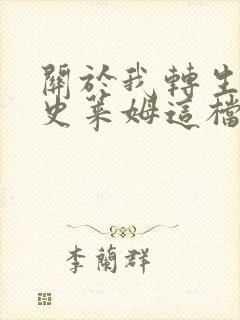 關於我轉生
史萊姆這檔
李蘭群